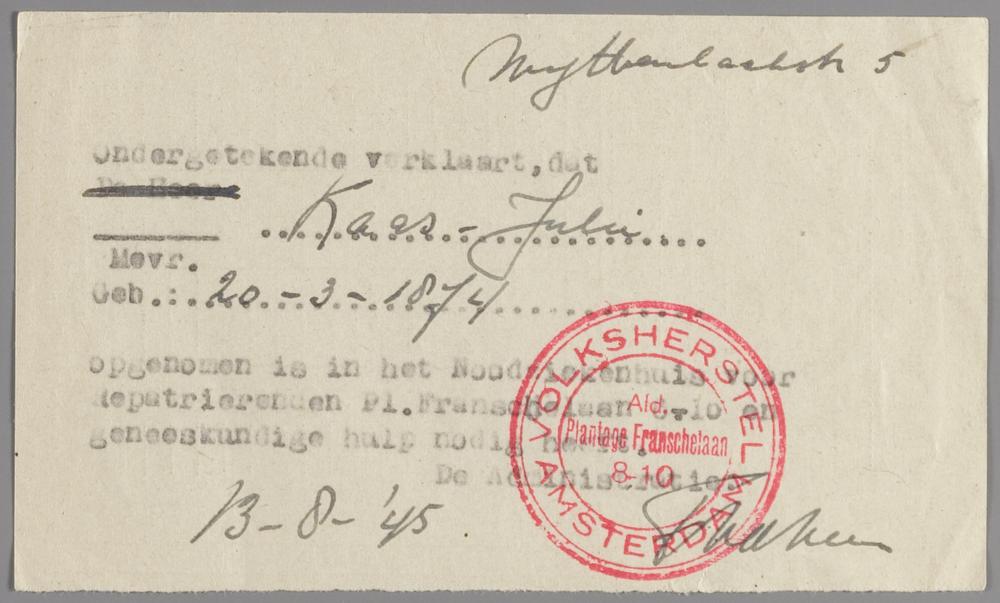 Wyttenbachstr 5
Ondergetekende verklaart, dat
De Heer
Kaas - Julie
Mevr.
Geb.:. 20 - 3 - 1874
opgenomen is in het Noodziekenhuis voor
Repatrierenden Pl.Franschelaan 8-10 en
geneeskundige hulp nodig heeft.
De Administratie.
13 - 8 - '45
VOLKSHERSTEL
Afd.
Plantage Franschelaan
8-10
AMSTERDAM